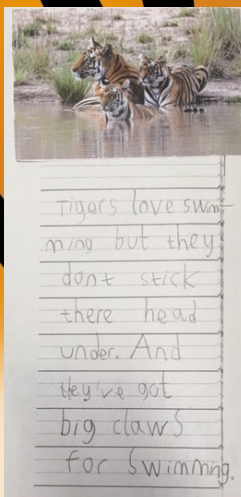 Tigers love swim-
ming but they
don't stick
there head
under. And
they've got
big claws
for swimming.